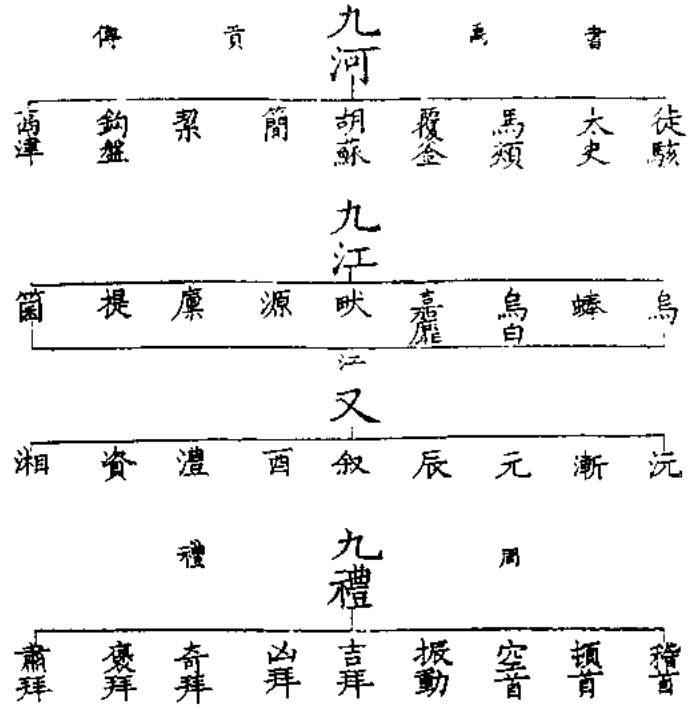 書禹貢傳
九河
徒駭 太史 馬頰 覆釜 胡蘇 簡 絜 鈎盤 鬲津
九江
烏 蜯 烏白 嘉靡 畎 源 廩 提 箘
江
又
沅 漸 元 辰 叙 酉 澧 資 湘
周禮
九禮
稽首 頓首 空首 振動 吉拜 凶拜 奇拜 褒拜 肅拜